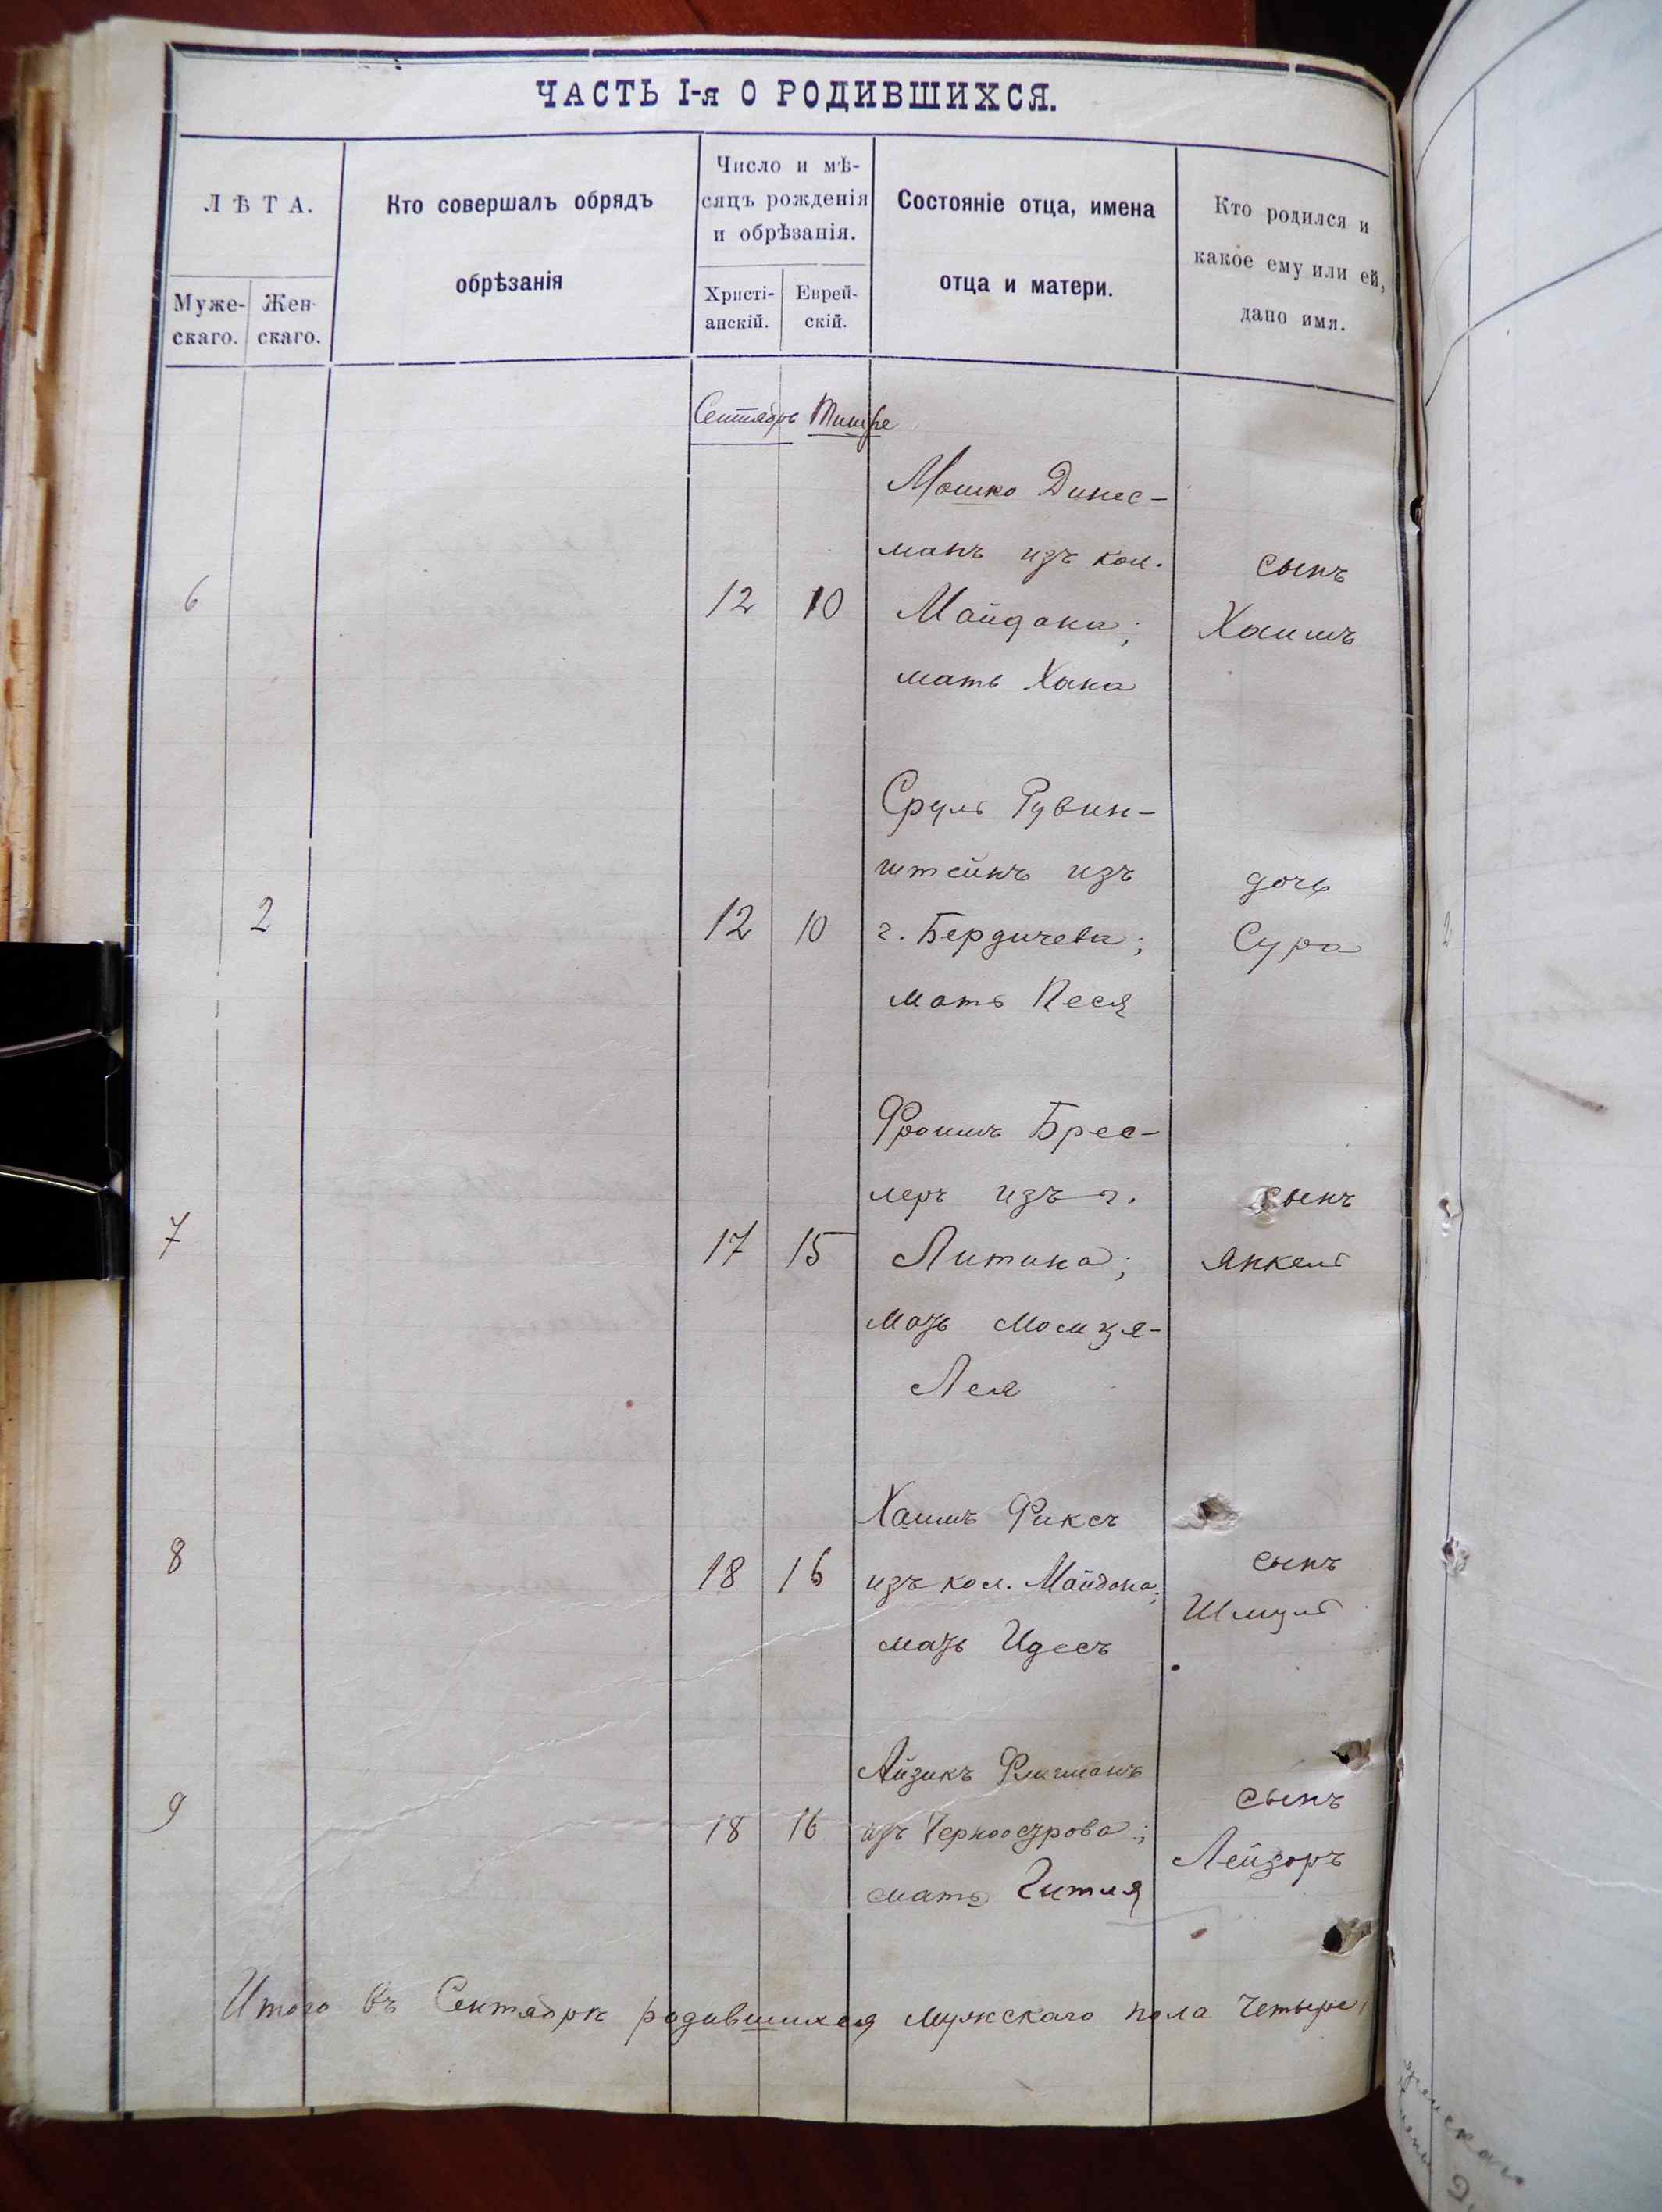 ЧАСТЬ I-я О РОДИВШИХСЯ.
ЛѢТА.
Муже-
скаго.
Жен-
скаго.
Кто совершалъ обрядъ
обрѣзанія
Число и мѣ-
сяцъ рожденія
и обрѣзанія.
Христі-
анскій.
Еврей-
скій.
Состояніе отца, имена
отца и матери.
Кто родился и
какое ему или ей,
дано имя.
Сентябрь Тишре
6
12 10
Мошко Динес-
манъ изъ кол.
Майдана;
мать Хана
сынъ
Хаимъ
2
12 10
Сруль Рувин-
штейнъ изъ
г. Бердичева;
мать Песя
дочь
Сура
7
17 15
Фроимъ Брес-
леръ изъ г.
Литина;
мать
Лея
сынъ
Янкель
8
18 16
Хаимъ Фиксъ
изъ кол. Майдана;
мать Идесъ
сынъ
Шмуль
9
18 16
Айзикъ
изъ Черноострова;
мать Гитля
сынъ
Лейзоръ
Итого въ Сентябрѣ родившихся мужскаго пола Четыре,
2
женскаго